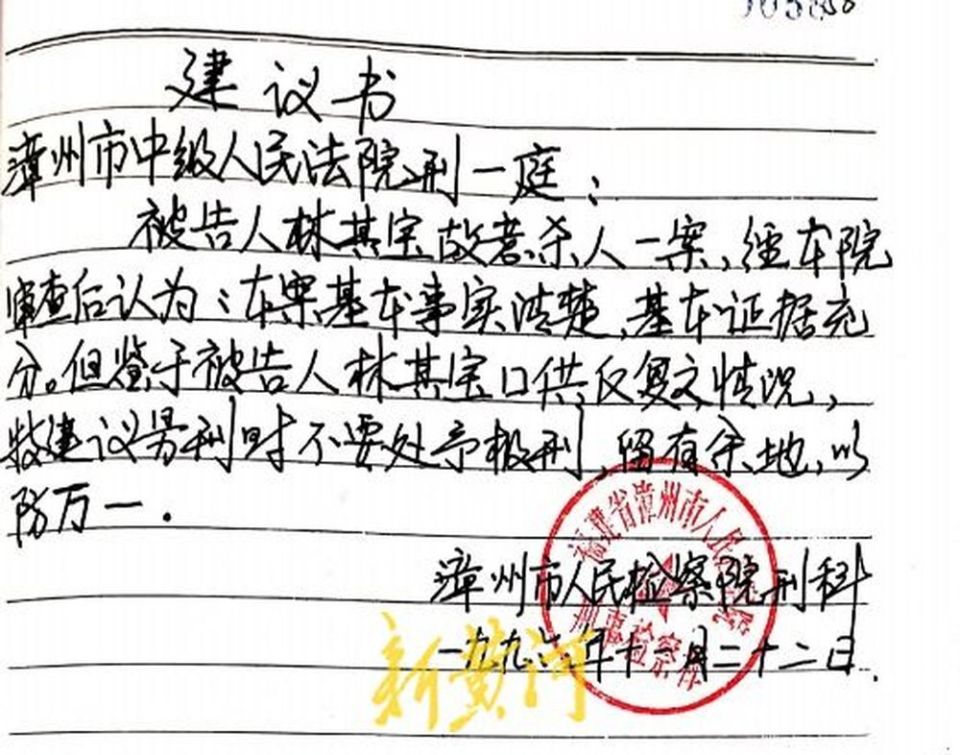 建议书
漳州市中级人民法院刑一庭：
被告人林其宝故意杀人一案，经本院
审查后认为：本案基本事实清楚，基本证据充
分。但鉴于被告人林其宝口供反复之情况，
特建议量刑时不要处予极刑，留有余地，以
防万一．
福建省漳州市人民检察院
刑事检察科
漳州市人民检察院刑科
一九九六年十一月二十二日．
新黄河